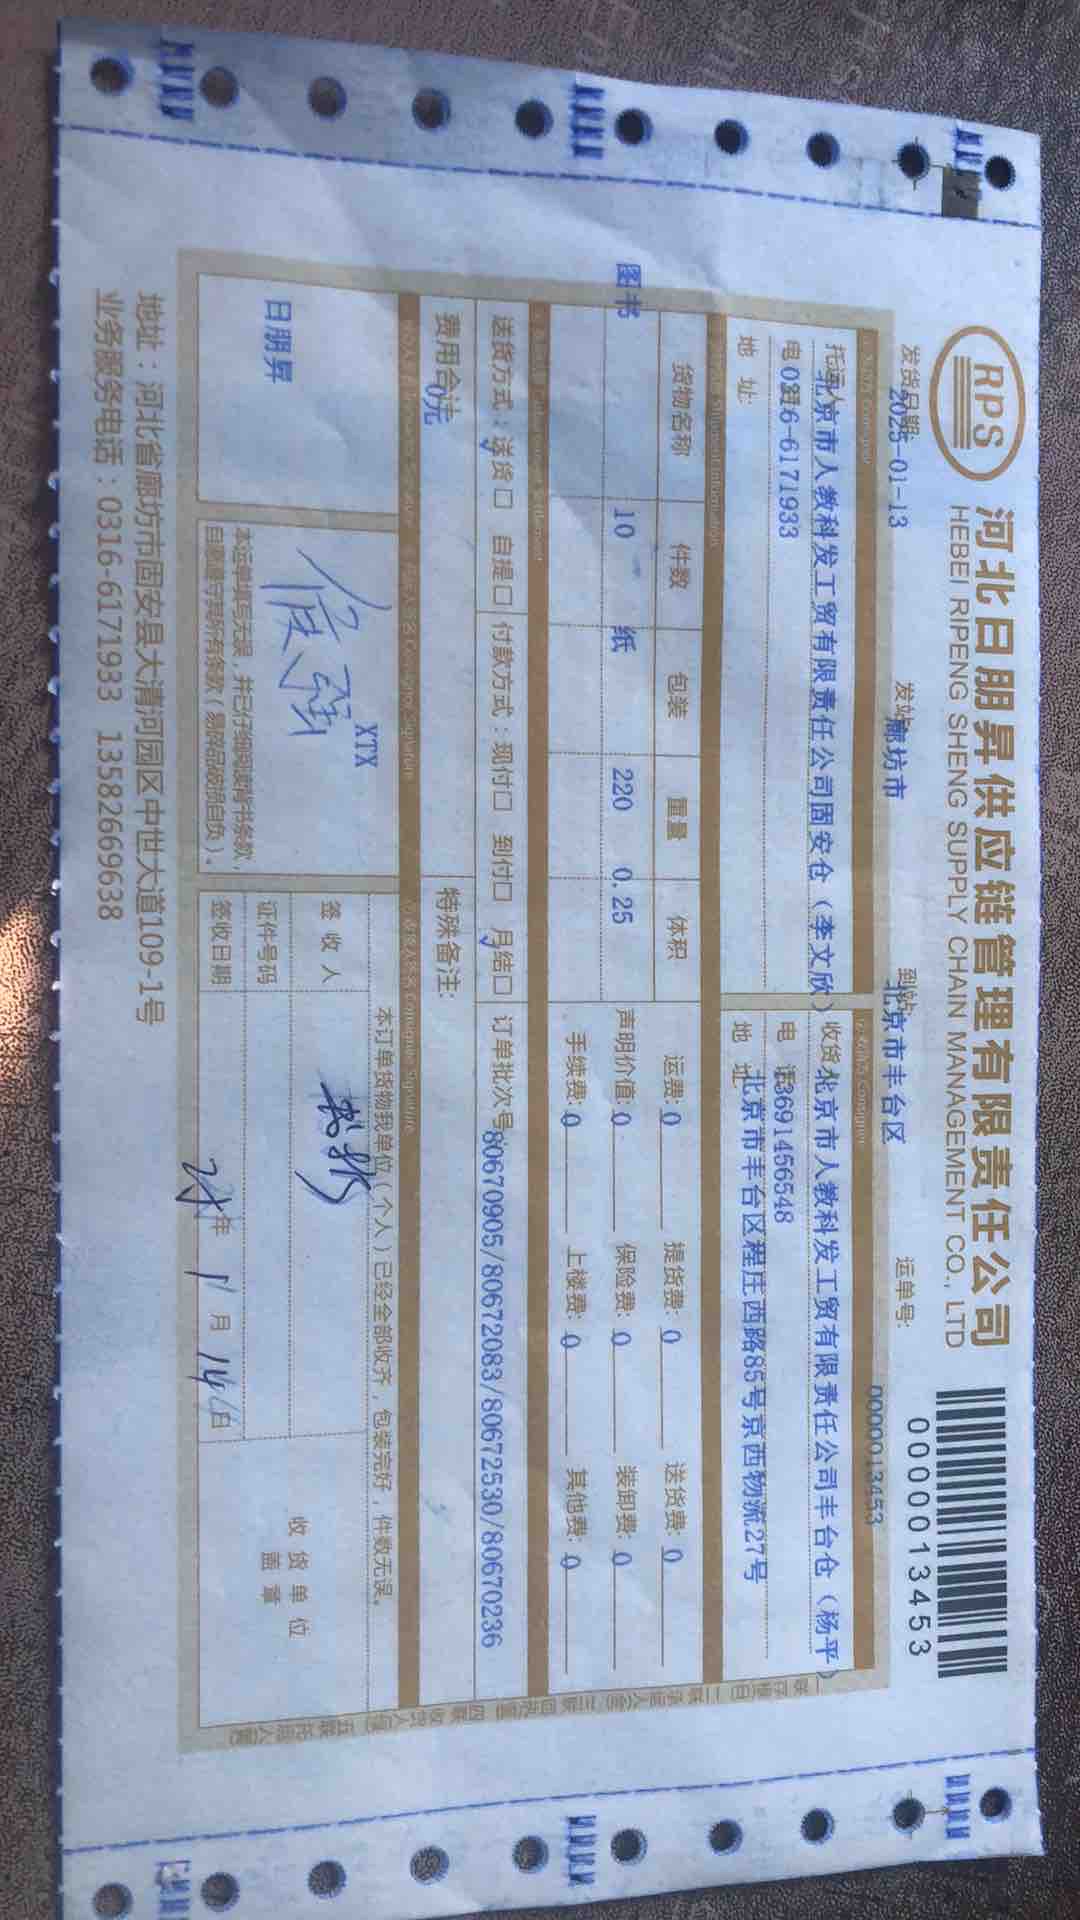 RPS
河北日朋昇供应链管理有限责任公司
HEBEI RIPENG SHENG SUPPLY CHAIN MANAGEMENT CO., LTD
0000013453
发货日期: 2025-01-13
发站: 廊坊市
到站: 北京市丰台区
运单号:
0000013453
托运人 北京市人教科发工贸有限责任公司固安仓（李文欣）
收货人 北京市人教科发工贸有限责任公司丰台仓（杨平）
电话 0316-6171933
电 话 13691456548
地 址:
地 址: 北京市丰台区程庄西路85号京西物流27号
Shipment Information
货物名称 件数 包装 重量 体积
图书 10 纸 220 0.25
运费: 0 提货费: 0 送货费: 0
声明价值: 0 保险费: 0 装卸费: 0
手续费: 0 上楼费: 0 其他费: 0
送货方式：送货口 自提口 付款方式：现付口 到付口 月结口 订单批次号: 80670905/80672083/80672530/80670236
费用合计: 0元
特殊备注:
Consignee Signature
日朋昇
XTX
本运单填写无误，并已仔细阅读背书条款，
自愿遵守其所有条款（易碎品破损自负）。
本订单货物我单位（个人）已经全部收齐，包装完好，件数无误。
签 收 人
证件号码
签收日期 25年 1月 14日
收 货 单 位
盖 章
地址：河北省廊坊市固安县大清河园区中世大道109-1号
业务服务电话：0316-6171933 13582669638